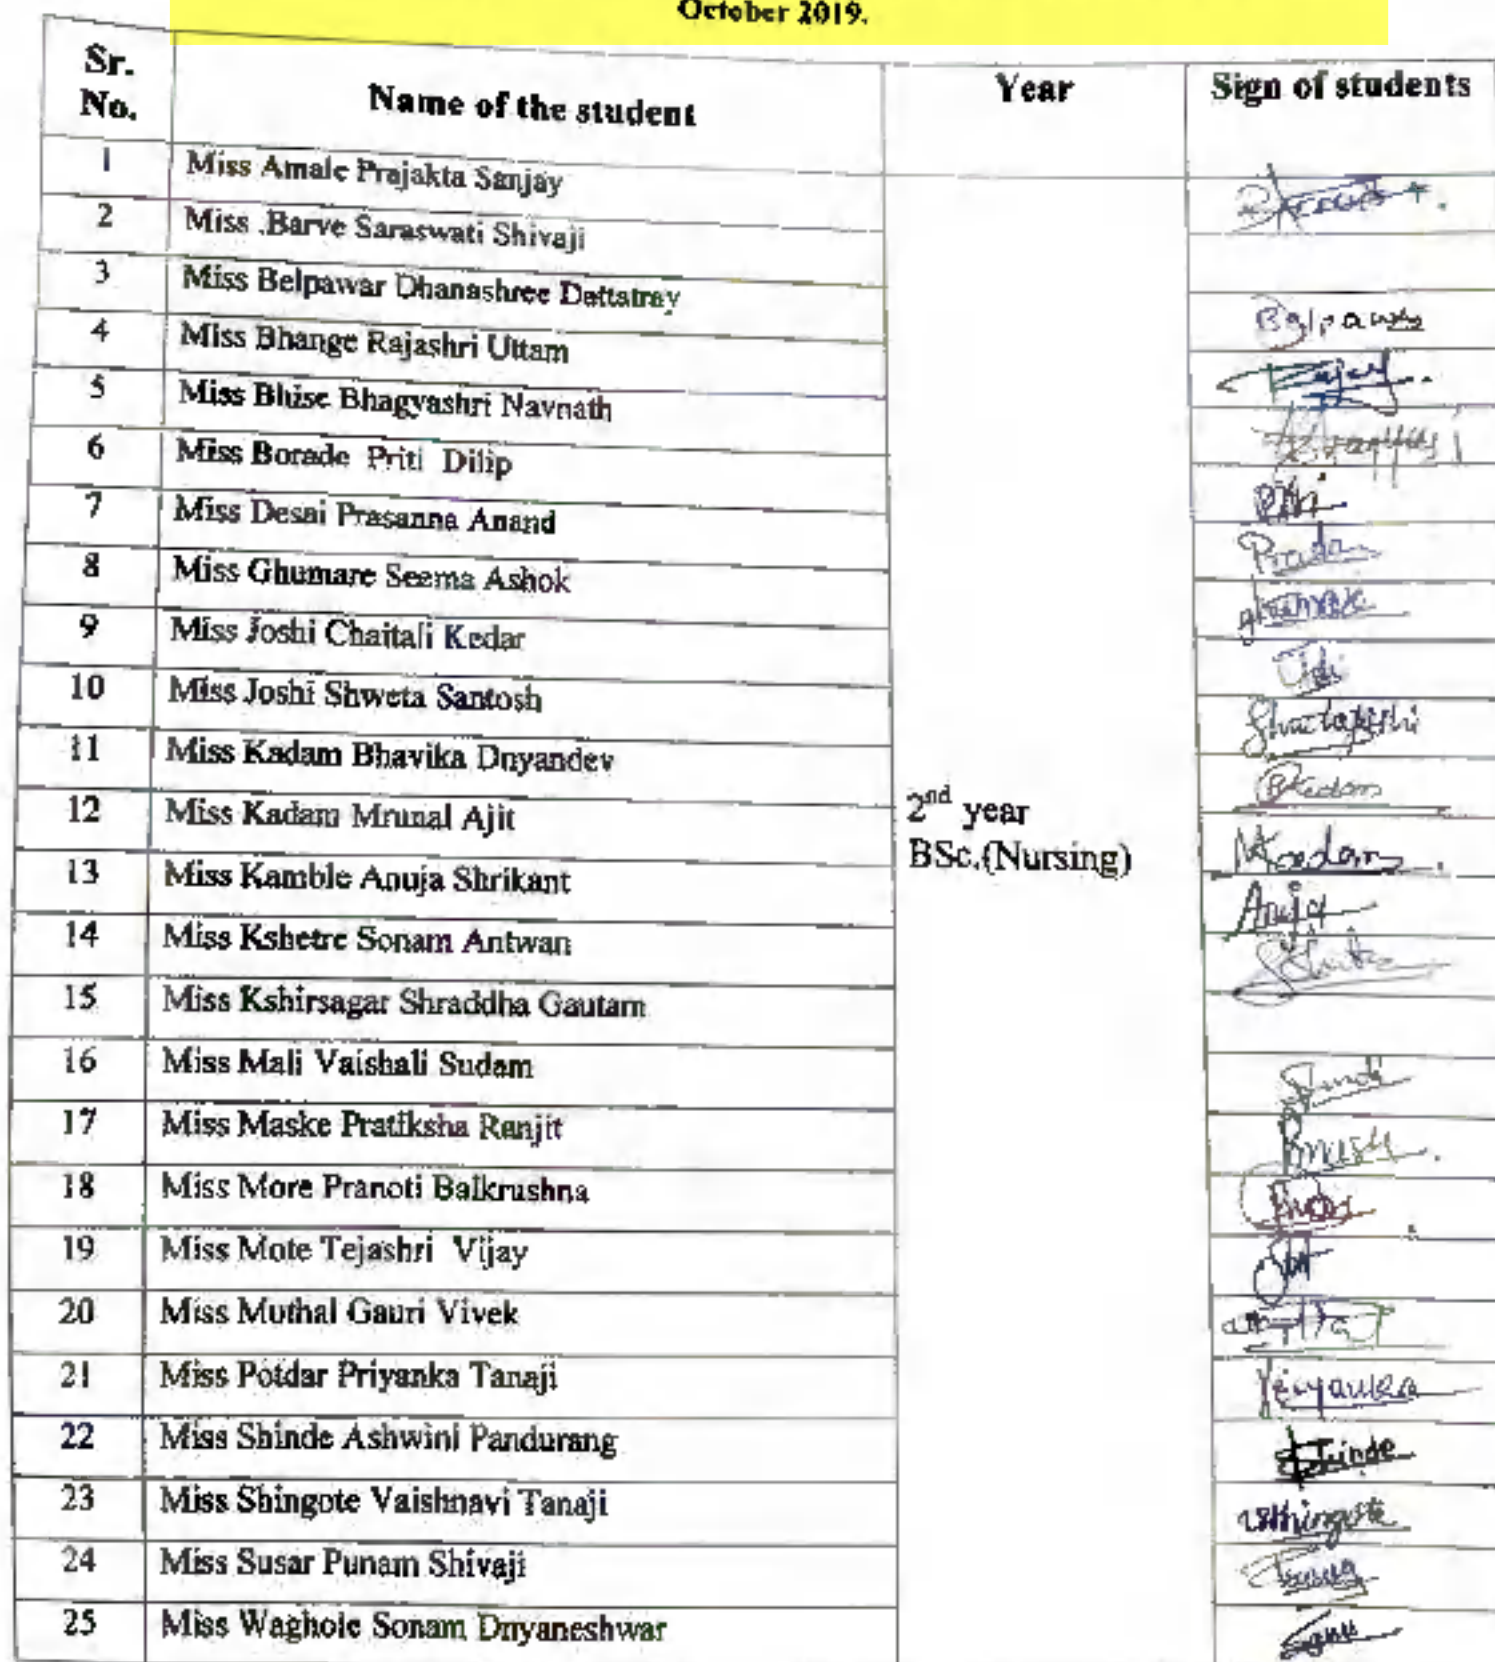 October 2019.
Sr. No. Name of the student Year Sign of students
1 Miss Amale Prajakta Sanjay
2 Miss .Barve Saraswati Shivaji
3 Miss Belpawar Dhanashree Dattatray
4 Miss Bhange Rajashri Uttam
5 Miss Bhise Bhagyashri Navnath
6 Miss Borade Priti Dilip
7 Miss Desai Prasanna Anand
8 Miss Ghumare Seema Ashok
9 Miss Joshi Chaitali Kedar
10 Miss Joshi Shweta Santosh
11 Miss Kadam Bhavika Dnyandev
12 Miss Kadam Mrunal Ajit 2nd year
BSc.(Nursing)
13 Miss Kamble Anuja Shrikant Anuja
14 Miss Kshetre Sonam Antwan
15 Miss Kshirsagar Shraddha Gautam
16 Miss Mali Vaishali Sudam
17 Miss Maske Pratiksha Ranjit
18 Miss More Pranoti Balkrushna
19 Miss Mote Tejashri Vijay
20 Miss Muthal Gauri Vivek
21 Miss Potdar Priyanka Tanaji Priyanka
22 Miss Shinde Ashwini Pandurang Shinde
23 Miss Shingote Vaishnavi Tanaji
24 Miss Susar Punam Shivaji
25 Miss Waghole Sonam Dnyaneshwar